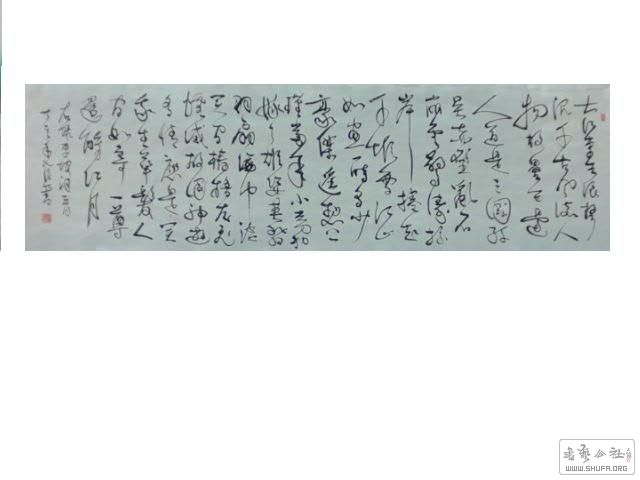 大江東去浪聲
沉千古風流人
物故壘西邊
人道是三國孫
吳赤壁亂石
崩雲驚濤掠
岸捲起
千堆雪江山
如畫一時多少
豪傑遙想公
瑾當年小喬初
嫁了雄姿英發
羽扇綸巾談
笑間檣艣灰飛
煙滅故國神遊
多情應是笑
我生華髮人
間如寄一尊
還酹江月
東坡詞
書
書藝公社
WWW.SHUFA.ORG